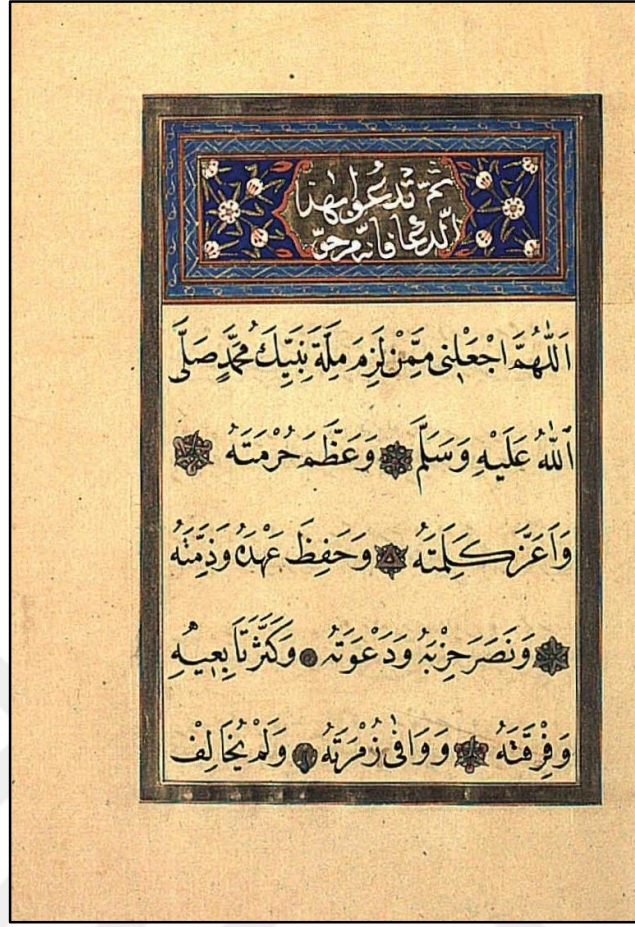 ثمّ تدعوا بهذا
الدعا فانّه مرجوّ
اَللّٰهُمَّ اجْعَلْنِى مِمَّنْ لَزِمَ مِلَّةَ نَبِيِّكَ مُحَمَّدٍ صَلَّى
اَللّٰهُ عَلَيْهِ وَسَلَّمَ وَعَظَّمَ حُرْمَتَهُ
وَاَعَزَّ كَلِمَتَهُ وَحَفِظَ عَهْدَهُ وَذِمَّتَهُ
وَنَصَرَ حِزْبَهُ وَدَعْوَتَهُ وَكَثَّرَ تَابِعِيهِ
وَفِرْقَتَهُ وَوَافٰى زُمْرَتَهُ وَلَمْ يُخَالِفْ